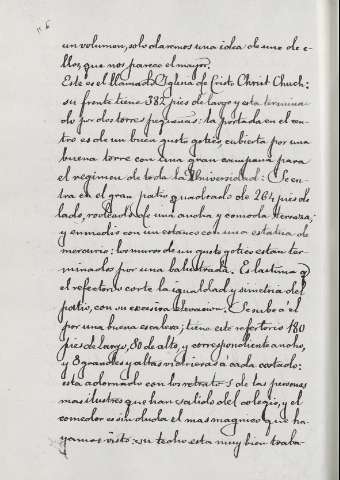 un volumen, solo daremos una idea de uno de e-
llos, que nos parece el mayor.
Este es el llamado Iglesia de Cristo Christ Chuch:
su frente tiene 382 pies de largo y esta termina
do por dos torres pequeñas: la portada en el cen-
tro es de un buen gusto gotico, cubierta por una
buena torre con una gran campana para
el regimen de toda la Universidad: Se en-
tra en el gran patio quadrado de 264 pies de
lado, rodeado de una ancha y comoda terraza,
y en medio con un estanco con una estatua de
mercurio: los muros de un gusto gotico estan ter-
minados por una balustrada. Es lastima q
el refectorio corte la igualdad y simetria del
patio, con su excesiva elevacion. Se sube a el
por una buena escalera; tiene este refertorio 180
pies de largo, 80 de alto, y correspondiente ancho,
y 8 grandes y altas vidrieras á cada costado:
esta adornado con los retratos de las personas
mas ilustres que han salido del colegio, y el
comedor es sin duda el mas magnico que ha-
yamos visto: su techo esta muy bien traba-